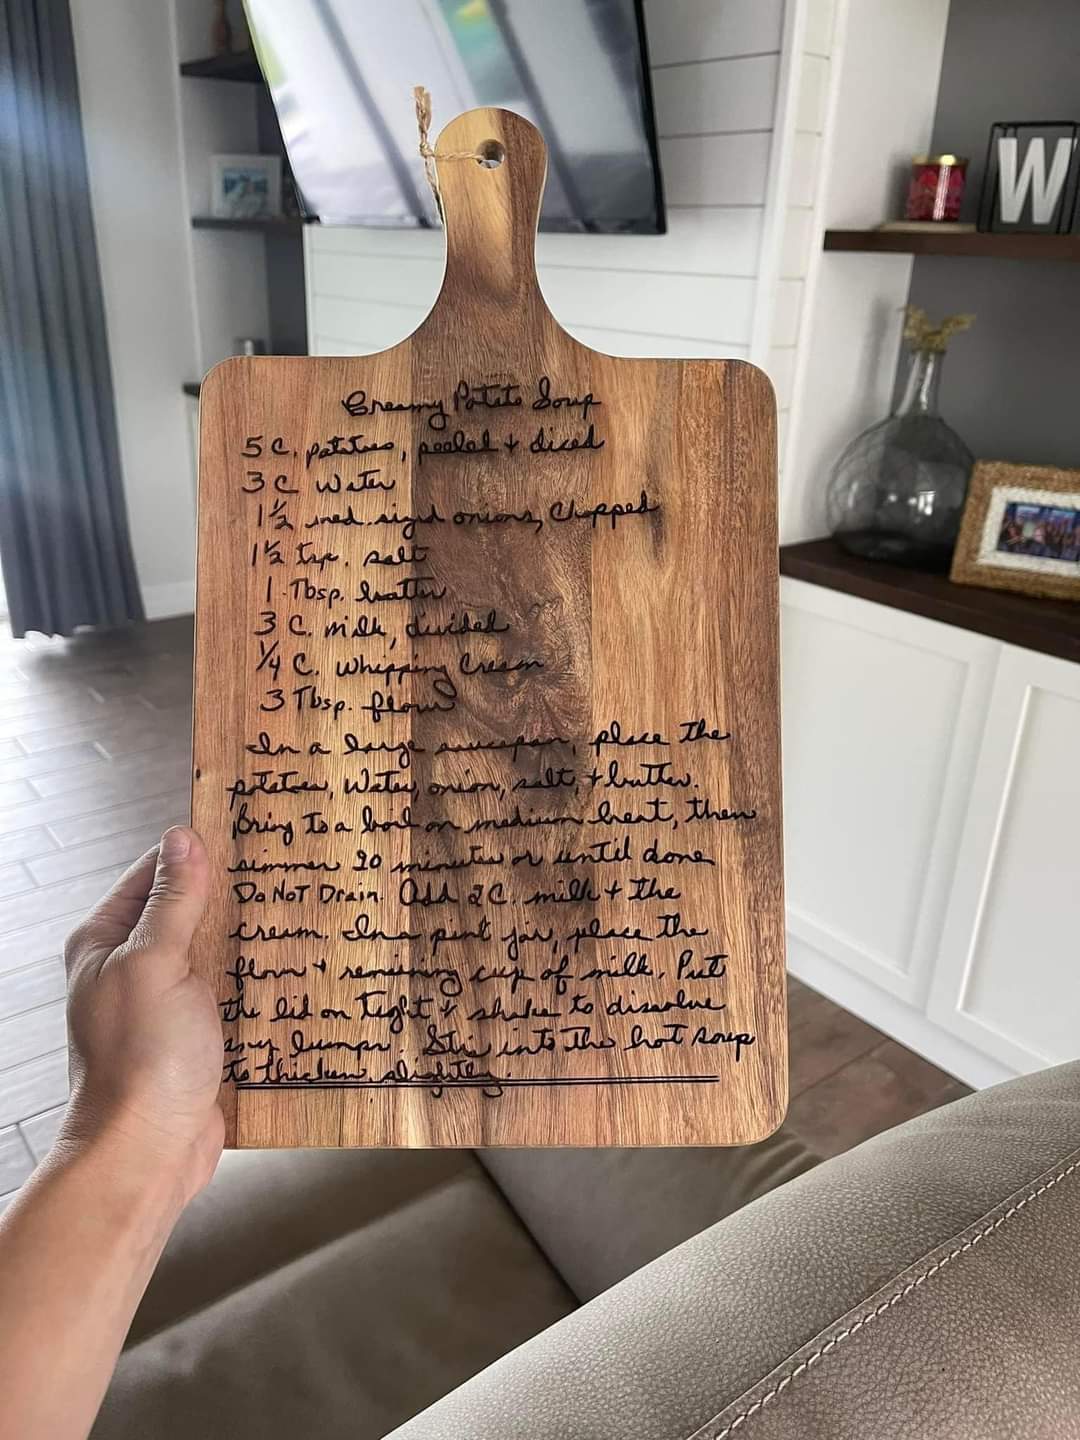 Creamy Potato Soup
5 C. potatoes, peeled + diced
3 C Water
1 1/2 med. sized onions, Chopped
1 1/2 tsp. salt
1 Tbsp. butter
3 C. milk, divided
1/4 C. Whipping Cream
3 Tbsp. flour
In a large saucepan, place the
potatoes, Water, onion, salt, + butter.
Bring to a boil on medium heat, then
simmer 20 minutes or until done
Do NOT Drain. Add 2 C. milk + the
cream. In a pint jar, place the
flour + remaining cup of milk. Put
the lid on tight + shake to dissolve
any lumps. Stir into the hot soup
to thicken slightly.
W